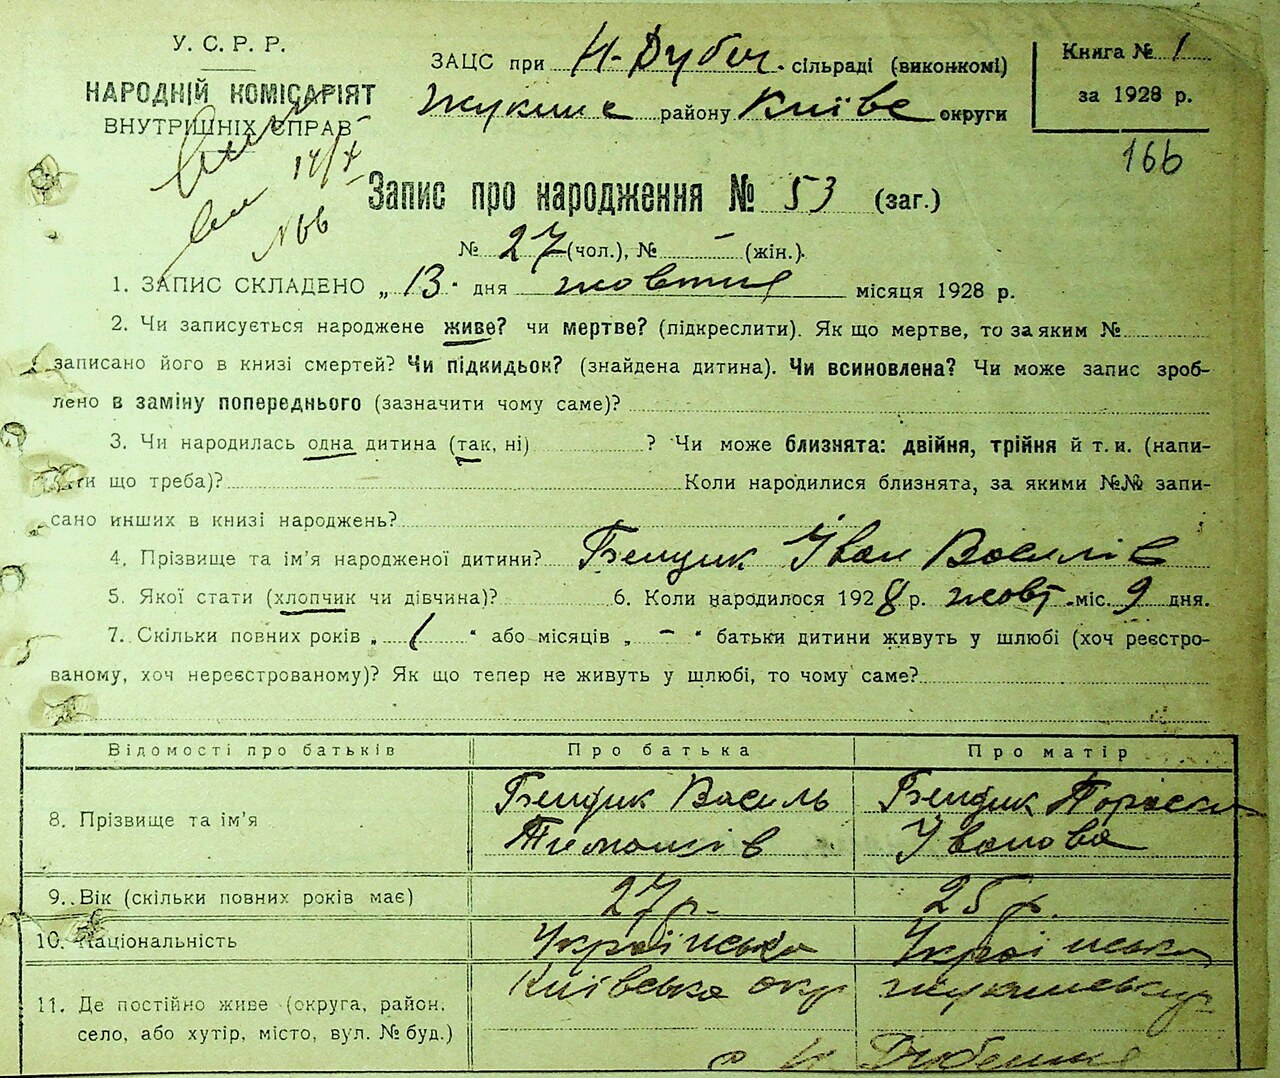 У. С. Р. Р.
НАРОДНІЙ КОМІСАРІЯТ
ВНУТРІШНІХ СПРАВ
ЗАЦС при Н-Дубеч. сільраді (виконкомі)
Жукинс району Київс округи
Книга № 1
за 1928 р.
166
14/X
№ 66
Запис про народження № 53 (заг.)
№ 27 (чол.), № – (жін.).
1. ЗАПИС СКЛАДЕНО „13" дня жовтня місяця 1928 р.
2. Чи записується народжене живе? чи мертве? (підкреслити). Як що мертве, то за яким №
записано його в книзі смертей? Чи підкидьок? (знайдена дитина). Чи всиновлена? Чи може запис зроб-
лено в заміну попереднього (зазначити чому саме)?
3. Чи народилась одна дитина (так, ні) ? Чи може близнята: двійня, трійня й т. и. (напи-
ти що треба)? Коли народилися близнята, за якими №№ запи-
сано инших в книзі народжень?
4. Прізвище та ім'я народженої дитини? Бендик Іван Василів
5. Якої стати (хлопчик чи дівчина)? 6. Коли народилося 1928 р. жовт. міс. 9 дня.
7. Скільки повних років „ 1 " або місяців „ – " батьки дитини живуть у шлюбі (хоч реєстро-
ваному, хоч нереєстрованому)? Як що тепер не живуть у шлюбі, то чому саме?
Відомості про батьків Про батька Про матір
8. Прізвище та ім'я Бендик Василь Бендик Параска
Тимошів Іванова
9. Вік (скільки повних років має) 27 р. 25 р.
10. Національність Українська Українська
11. Де постійно живе (округа, район, Київська окр
село, або хутір, місто, вул. № буд.)